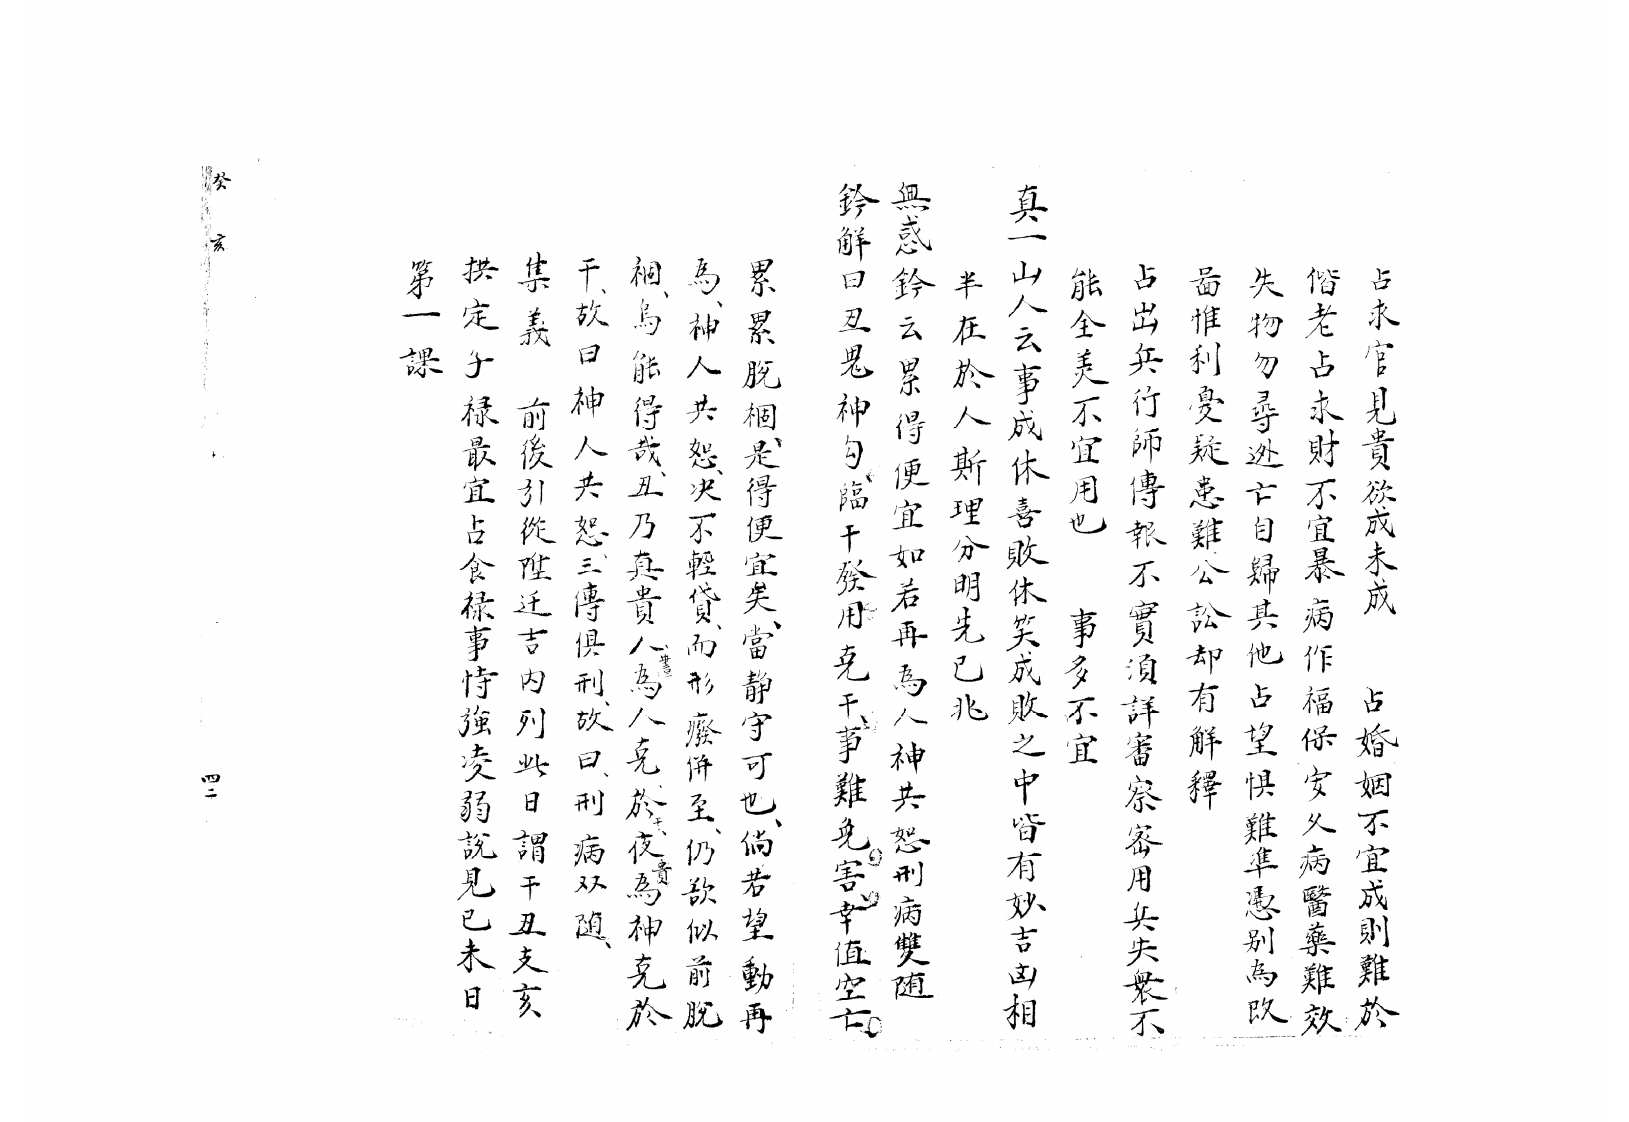 占求官見貴欲成未成　占婚姻不宜成則難於
偕老占求財不宜暴病作福保安久病醫藥難效
失物勿尋逃亡自歸其他占望惧難準憑別為改
啚惟利憂疑患難公訟却有解釋
占出兵行師傳報不實須詳審察密用兵失衆不
能全美不宜用也　事多不宜
真一山人云事成休喜敗休笑成敗之中皆有妙吉凶相
半在於人斯理分明先已兆
無惑鈐云累得便宜如若再為人神共恕刑病雙随
鈐解曰丑鬼神勾臨干發用克干事難免害幸值空亡
累累脫梱是得便宜矣當静守可也倘若望動再
為神人共恕决不輕貸而形癈併至仍欲似前脫
梱烏能得哉丑乃真貴人晝為人克於干夜貴為神克於
干故曰神人共恕三傳俱刑故曰刑病双随
集義　前後引從陞迁吉内列此日謂干丑支亥
拱定子禄最宜占食禄事恃強凌弱說見已未日
第一課
癸亥
四二